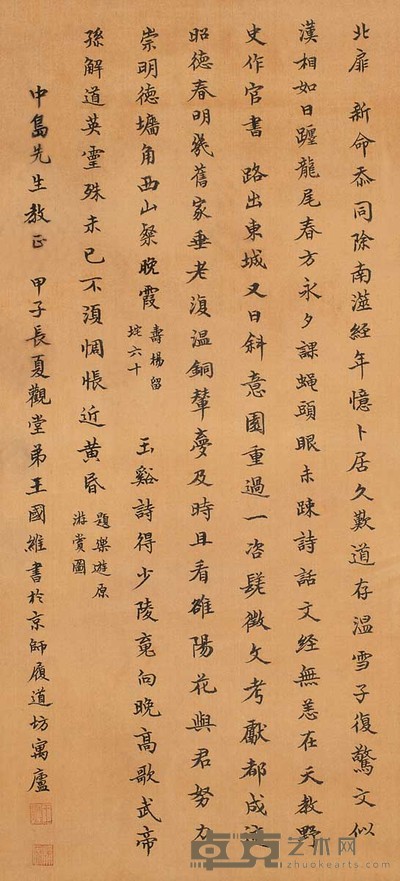 北扉 新命忝同除南澨經年憶卜居久歎道存溫雪子復驚文似
漢相如日躔龍尾春方永夕課蠅頭眼未疎詩話文經無恙在天教野
史作官書 路出東城又日斜意園重過一咨嗟微文考獻都成
昭德春明幾舊家垂老復溫銅輦夢及時且看雒陽花與君努力
崇明德墻角西山粲晚霞
壽楊留
垞六十
玉谿詩得少陵䰟向晚高歌武帝
孫解道英靈殊未已不須惆悵近黃昏
題樂遊原
游賞圖
中島先生教正 甲子長夏觀堂弟王國維書於京師履道坊寓廬
卓克艺术网
zhuokearts.com